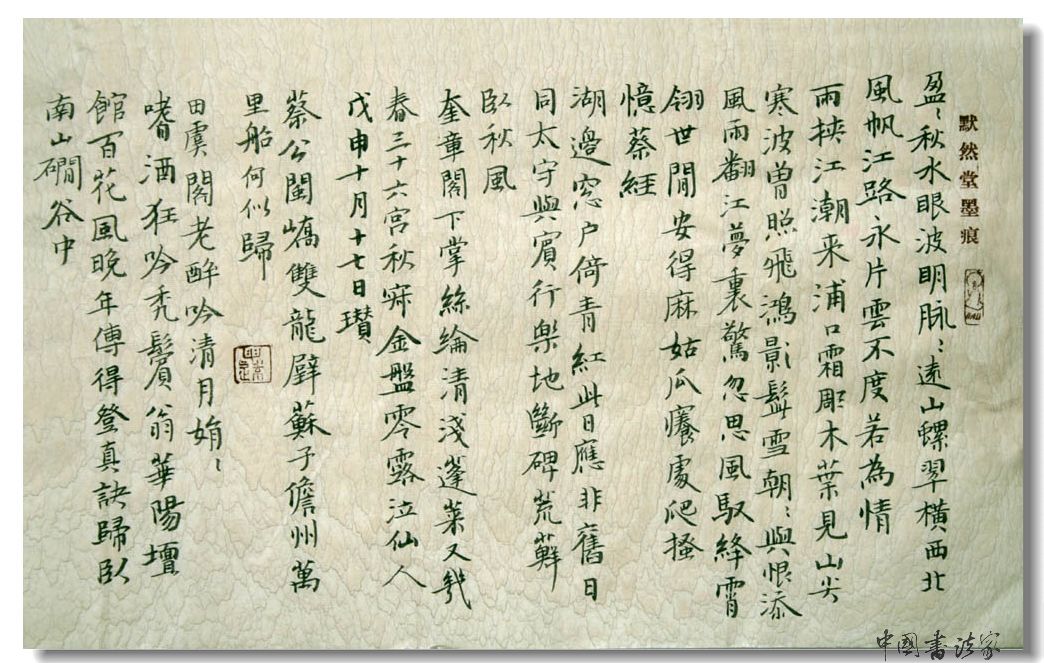 默然堂墨痕
盈〻秋水眼波明脉〻遠山螺翠橫西北
風帆江路永片雲不度若為情
雨挾江潮来浦口霜彫木葉見山尖
寒波曽照飛鴻影髩雪朝〻與恨添
風雨翻江夢裏驚忽思風馭絳霄
翎世間安得麻姑瓜癢處爬搔
憶蔡經
湖邉窓户倚青紅此日應非舊日
同太守與賓行樂地斷碑荒蘚
臥秋風
奎章閣下掌絲綸清淺蓬萊又㡬
春三十六宮秋寂金盤零露泣仙人
戊申十月十七日瓚
蔡公閩嶠雙龍壁蘇子儋州萬
里船何似歸
田虞閣老醉吟清月娟〻
嗜酒狂吟禿鬢翁華陽壇
館百花風晚年傳得登真訣歸臥
南山磵谷中
中國書法家